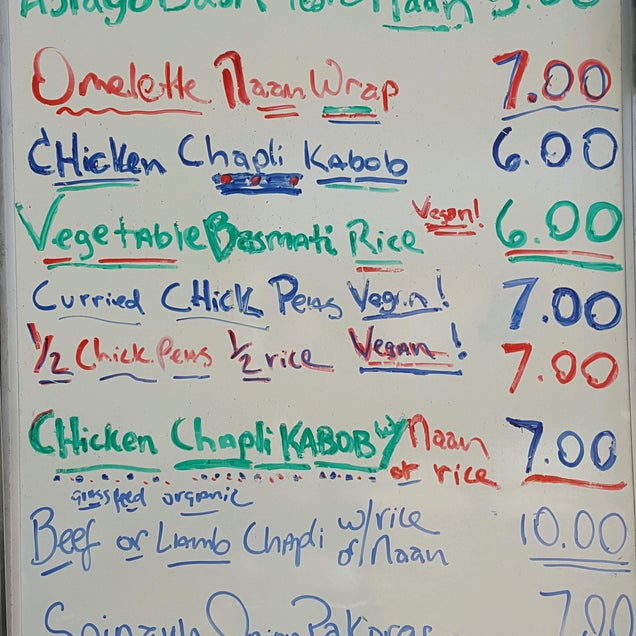 Asiago Basil Naan 5.00
Omelette Naan Wrap 7.00
Chicken Chapli Kabob 6.00
Vegetable Basmati Rice Vegan! 6.00
Curried Chick Peas Vegan! 7.00
1/2 Chick Peas 1/2 rice Vegan! 7.00
Chicken Chapli KABOB w/ Naan or rice 7.00
grassfeed organic
Beef or Lamb Chapli w/rice or/Naan 10.00
Spinach Onion Pakoras 7.00